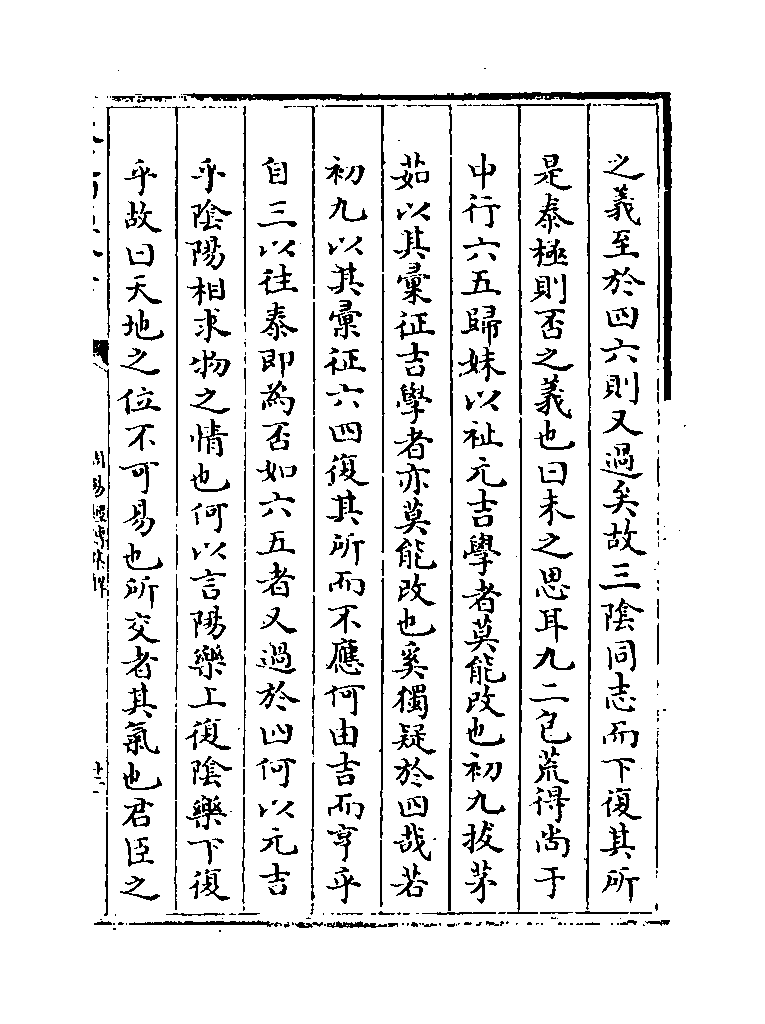 之義至於四六則又過矣故三陰同志而下復其所
是泰極則否之義也曰未之思耳九二包荒得尚于
中行六五歸妹以祉元吉學者莫能改也初九拔茅
茹以其彙征吉學者亦莫能改也奚獨疑於四哉若
初九以其彙征六四復其所而不應何由吉而亨乎
自三以往泰即為否如六五者又過於四何以元吉
乎陰陽相求物之情也何以言陽樂上復陰樂下復
乎故曰天地之位不可易也所交者其氣也君臣之